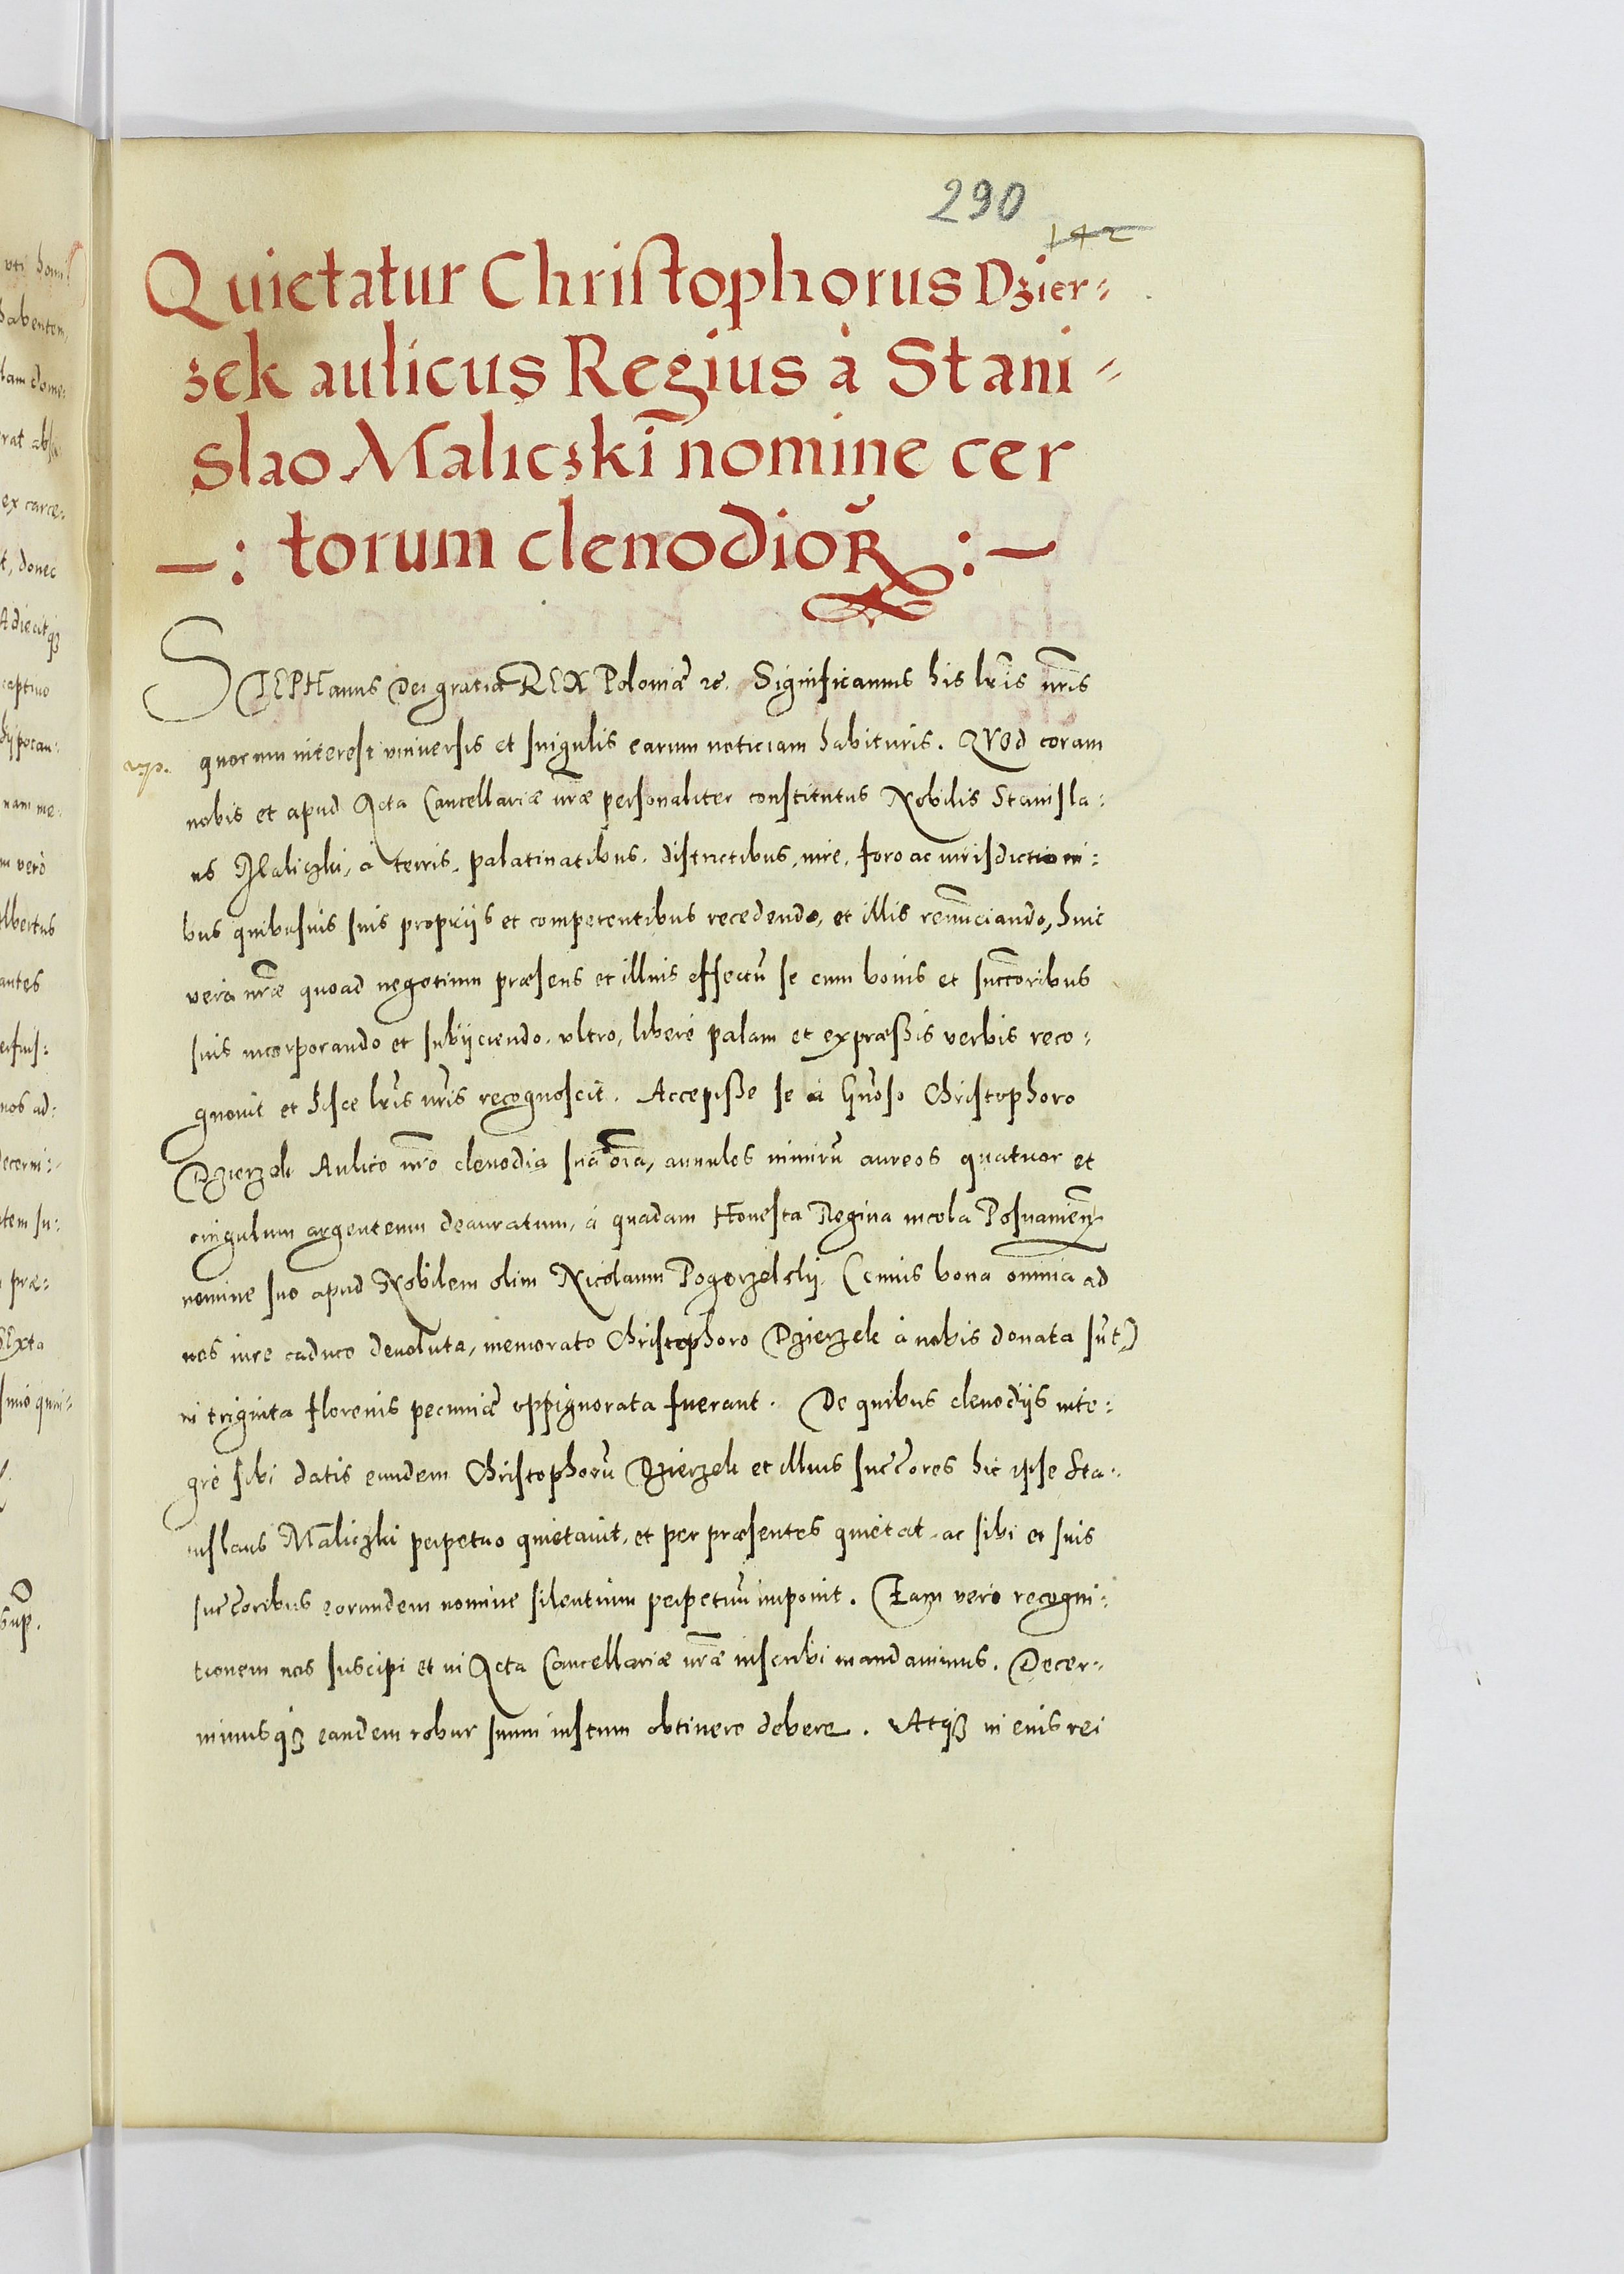 290
142
Quietatur Christophorus Dzier=
zek aulicus Regius à Stani=
slao Maliczkĩ nomine cer
—: torum clenodioꝝ :—
STEPHanus Dei gratia REX Poloniæ ⁊c. Significamus his lr̃is nr̃is
quorum interest vniuersis et singulis earum noticiam habituris. QVOd coram
nobis et apud Acta Cancellariæ nr̃æ personaliter constitutus Nobilis Stanisla:
us Maliczki, à terris, palatinatibus, districtibus, iure, foro ac iurisdictioni:
bus quibusuis suis proprijs et competentibus recedendo, et illis renũciando, huic
verò nr̃æ quoad negotium præsens et illius effectũ se cum bonis et succ̃oribus
suis incorporando et subijciendo, vltro, liberè palam et expræssis verbis reco:
gnouit et hisce lr̃is nr̃is recognoscit. Accepisse se à Gñoso Christophoro
Dzierzek Aulico nr̃o clenodia sua oĩa, annulos nimirũ aureos quatuor et
cingulum argenteum deauratum, à quadam Honesta Regina incola Posnameñ
nomine suo apud Nobilem olim Nicolaum Pogorzelskÿ, (cuius bona omnia ad
nos iure caduco deuoluta, memorato Christophoro Dzierzek à nobis donata sũt)
in triginta florenis pecuniæ oppignorata fuerant. De quibus clenodijs inte:
grè sibi datis eundem Christophorũ Dzierzek et illius succ̃ores hic ipse Sta:
nislaus Maliczki perpetuo quietauit, et per præsentes quietat ac sibi et suis
succ̃oribus eorundem nomine silentium perpetuũ imponit. Eam vero recogni:
tionem nos suscipi et in Acta Cancellariæ nr̃æ inscribi mandauimus. Decer:
nimusqꝫ eandem robur suum iustum obtinere debere. Atqꝫ in eius rei